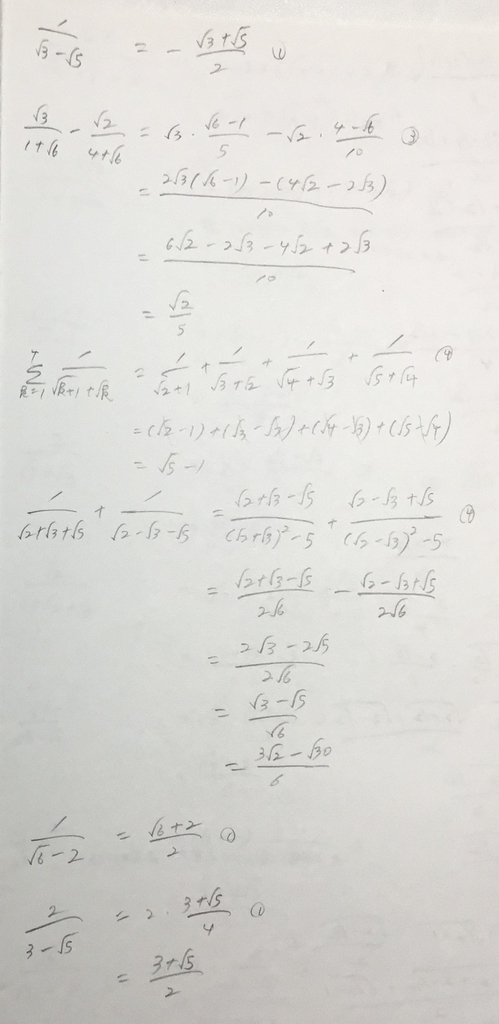 1/(√3-√5) = -(√3+√5)/2 ①
√3/(1+√6) - √2/(4+√6) = √3·(√6-1)/5 - √2·(4-√6)/10 ③
= (2√3(√6-1) - (4√2-2√3))/10
= (6√2-2√3-4√2+2√3)/10
= √2/5
Σ_{k=1}^{4} 1/(√k+1+√k) = 1/(√2+1) + 1/(√3+√2) + 1/(√4+√3) + 1/(√5+√4) ④
= (√2-1)+(√3-√2)+(√4-√3)+(√5-√4)
= √5-1
1/(√2+√3+√5) + 1/(√2-√3-√5) = (√2+√3-√5)/((√2+√3)²-5) + (√2-√3+√5)/((√2-√3)²-5) ④
= (√2+√3-√5)/2√6 - (√2-√3+√5)/2√6
= (2√3-2√5)/2√6
= (√3-√5)/√6
= (3√2-√30)/6
1/(√6-2) = (√6+2)/2 ①
2/(3-√5) = 2·(3+√5)/4 ①
= (3+√5)/2